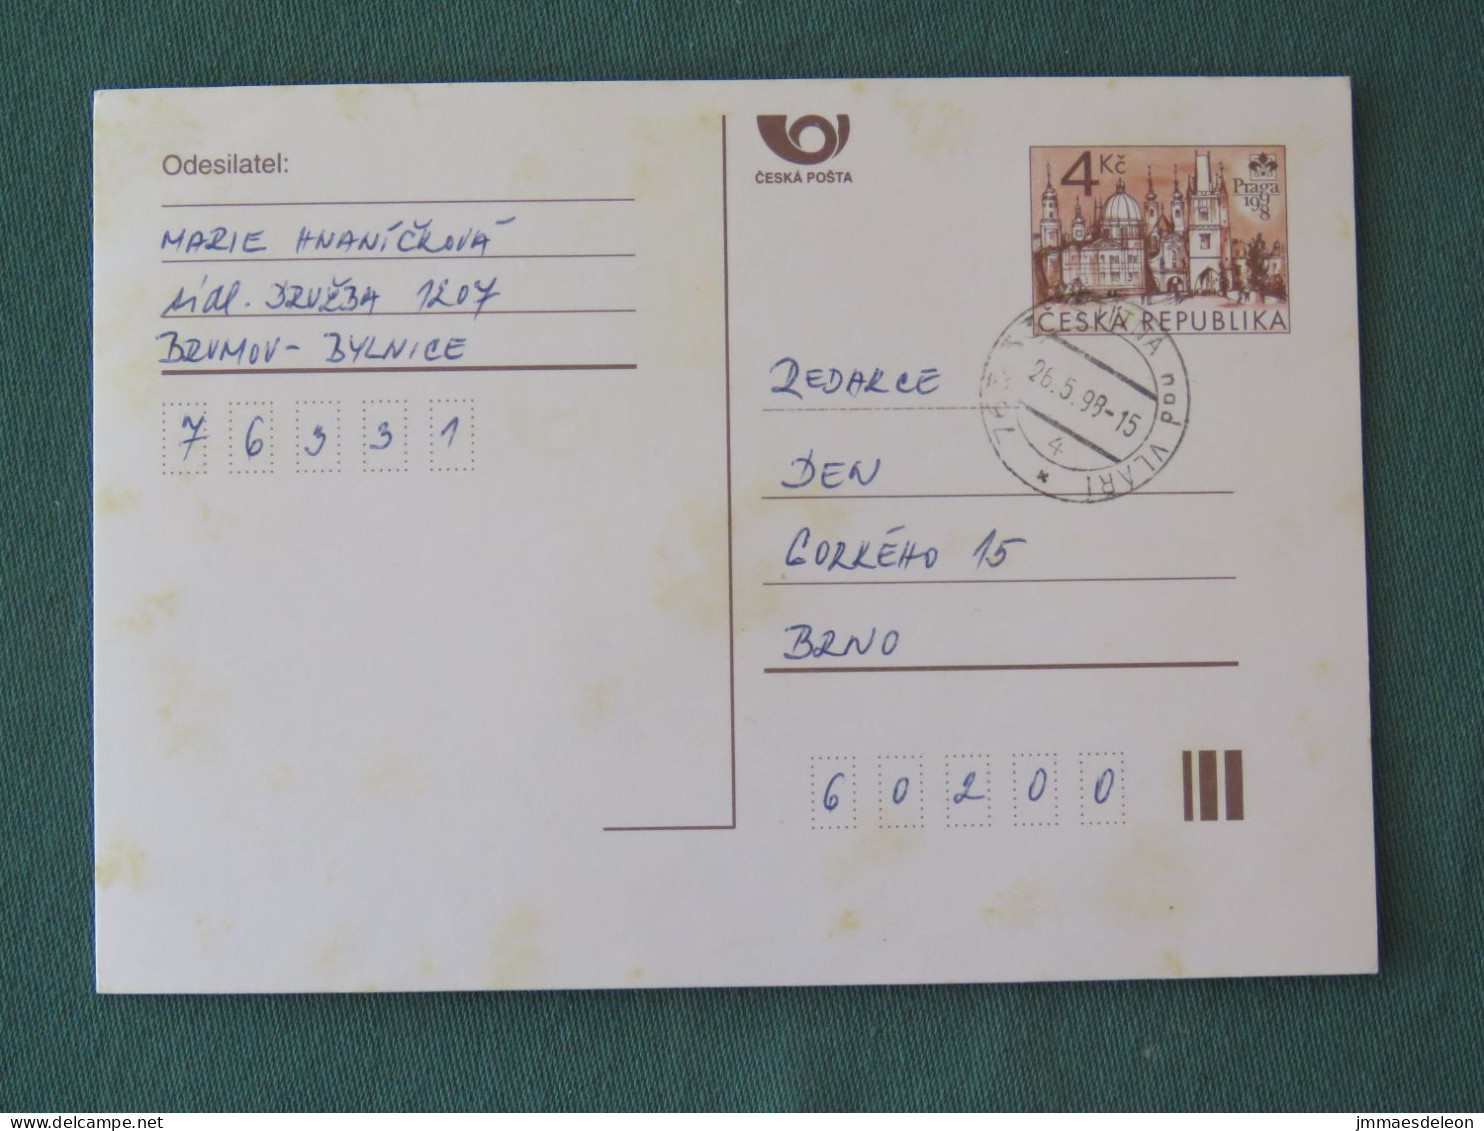 Odesilatel:
MARIE HNANÍČKOVÁ
sídl. DRUŽBA 1207
BRUMOV - BYLNICE
7 6 3 3 1
ČESKÁ POŠTA
4 Kč
Praga
1998
ČESKÁ REPUBLIKA
nad VLÁŘÍ
26.5.98-15
4
REDAKCE
DEN
GORKÉHO 15
BRNO
6 0 2 0 0
jmmaesdeleon